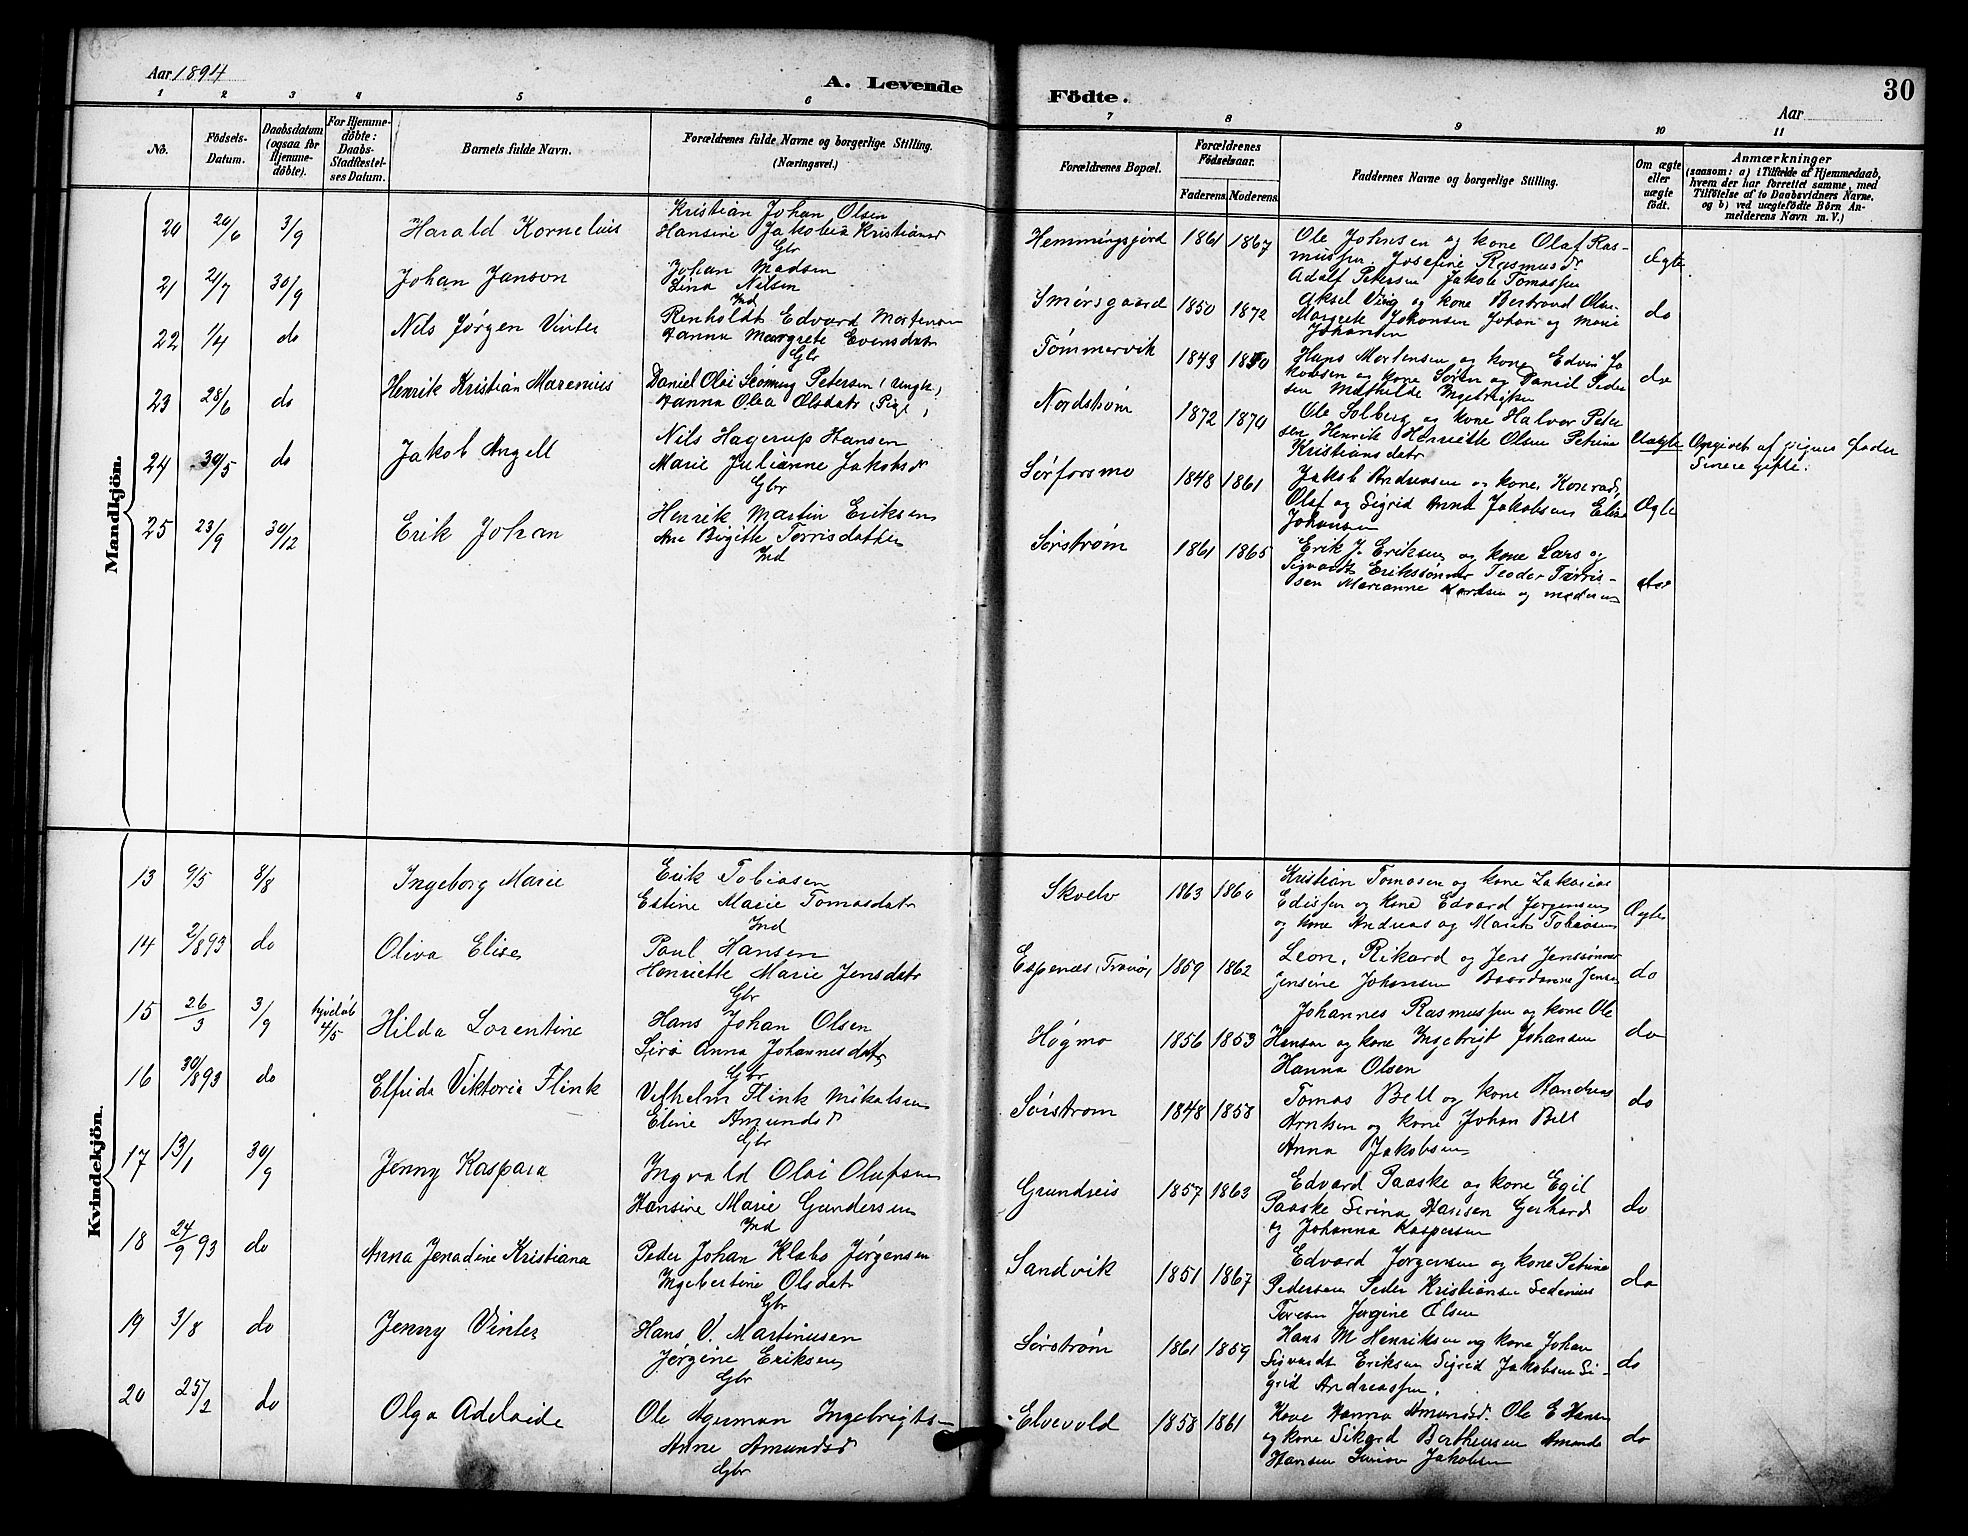 Aar 1894
A. Levende
1 2 3 4 5 6
No.
Födsels-Datum.
Daabsdatum (ogsaa for Hjemmedöbte).
For Hjemmedöbte: Daabs-Stadfæstelses Datum.
Barnets fulde Navn.
Forældrenes fulde Navne og borgerlige Stilling. (Næringsvei.)
Födte.
Aar
30
7 8 9 10 11
Forældrenes Bopæl.
Forældrenes Födselsaar.
Faderens. Moderens.
Faddernes Navne og borgerlige Stilling.
Om ægte eller uægte födt.
Anmærkninger
(saasom: a) i Tilfælde af Hjemmedaab,
hvem der har forrettet samme, med
Tilföielse af to Daabsvidners Navne.
og b) ved uægtefödte Börn An-
melderens Navn m. V.)
Mandkjön.
20 20/6 3/9 Harald Kornelius
Kristian Johan Olsen
Hansine Jakobia Kristiansd
Gbr
Hemmingsjord 1861 1867
Ole Johnsen og kone Olaf Ras-
mussen Josefine Rasmusd
Adolf Petersen Jakob Tomassen
Ægte
21 21/7 30/9 Johan Janson
Johan Madsen
Lina Nilsen
Ind
Smørsgaard 1850 1872
Aksel Ving og kone Bertrand Olsen
Margrete Johansen Johan og Marie
Johansen
do
22 1/4 do Nils Jørgen Vinter
Renholdt Edvard Mortensen
Hanna Margrete Evensdatr
Gbr
Tømmervik 1843 1850
Hans Mortensen og kone Edvin Ja
kobsen og kone Søren og Daniel Peder
sen Mathilde Ingebrigtsen
do
23 28/6 do Henrik Kristian Marenius
Daniel Olai Skønning Petersen (Ungk.)
Hanna Olea Olsdatr (Pige)
Nordstrøm 1872 1870
Ole Solberg og kone Halvor Peter
sen Henrik Henriette Olsen Petrine
Kristiansdatr
Uægte
Opgivet af pigens fader
Senere gifte.
24 30/5 do Jakob Angell
Nils Hagerup Hansen
Marie Julianne Jakobsd
Gbr
Sørforsmo 1848 1861
Jakob Andreasen og kone, Konrad,
Olaf og Sigrid Anna Jakobsen Elise
Johansen
Ægte
25 23/9 30/12 Erik Johan
Henrik Martin Eriksen
Ane Birgitte Torrisdatter
Ind
Sørstrøm 1861 1865
Erik J. Eriksen og kone Lars og
Sigvardt Erikssønner Teodor Tørris-
sen Marianne Larsen og moderen
do
Kvindekjön.
13 9/5 8/8 Ingeborg Marie
Erik Tobiasen
Estine Marie Tomasdatr
Ind
Skvelv 1863 1860
Kristian Tomasen og kone Zakarias
Edissen og kone Edvard Jørgensen
og kone Andreas og Marit Tobiasen
Ægte
14 2/8 93 do Oliva Elise
Paul Hansen
Henriette Marie Jensdatr
Gbr
Espenæs, Tranø, 1859 1862
Leon, Rikard og Jens Jenssønner
Jensine Johansen Baardanna Jensen
do
15 26/3 3/9 hjdøb 4/5 Hilda Lorentine
Hans Johan Olsen
Siri Anna Johannesdatr
Gbr
Høgmo 1856 1853
Johannes Rasmussen og kone Ole
Hansen og kone Ingebrigt Johansen
Hanna Olsen
do
16 30/8 93 do Elfrida Viktoria Flink
Vilhelm Flink Mikalsen
Eline Amundsd
Gbr
Sørstrøm 1848 1858
Tomas Bell og kone Andreas
Arntsen og kone Johan Bell
Anna Jakobsen
do
17 13/1 30/9 Jenny Kaspara
Ingvald Olai Olufsen
Hansine Marie Gundersen
Ind
Grundreis 1857 1863
Edvard Paaske og kone Egil
Paaske Sirina Hansen Gerhard
og Johanna Kaspersen
do
18 24/9 93 do Anna Jenadine Kristiana
Peder Johan Klæbo Jørgensen
Ingebertine Olsdatr
Gbr
Sandvik 1851 1867
Edvard Jørgensen og kone Petrine
Pedersen Peder Kristiansen Sedenius
Toresen Jørgine Olsen
do
19 3/8 do Jenny Vinter
Hans V. Martinusen
Jørgine Eriksen
Gbr
Sørstrøm 1861 1859
Hans M Henriksen og kone Johan
Sigvardt Eriksen Sigrid Jakobsen Si-
grid Andreassen.
do
20 25/2 do Olga Adelaide
Ole Agerman Ingebrigts-
Anne Amundsd
Gbr
Elvevold 1858 1861
Kone Hanna Amundsd. Ole E Hansen
og kone Sikard Berthensen Amanda
Hansen Simon Jakobsen
do